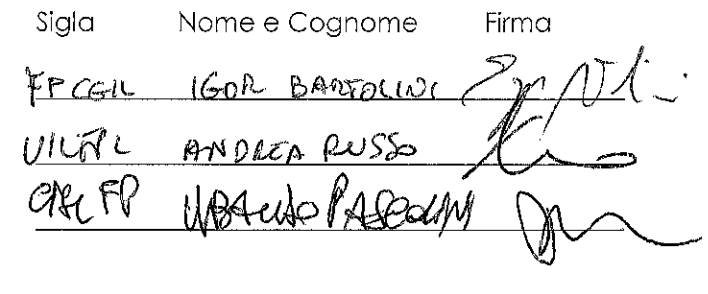 Sigla Nome e Cognome Firma
FP CGIL IGOR BARTOLINI
UILFPL ANDREA RUSSO
CISL FP